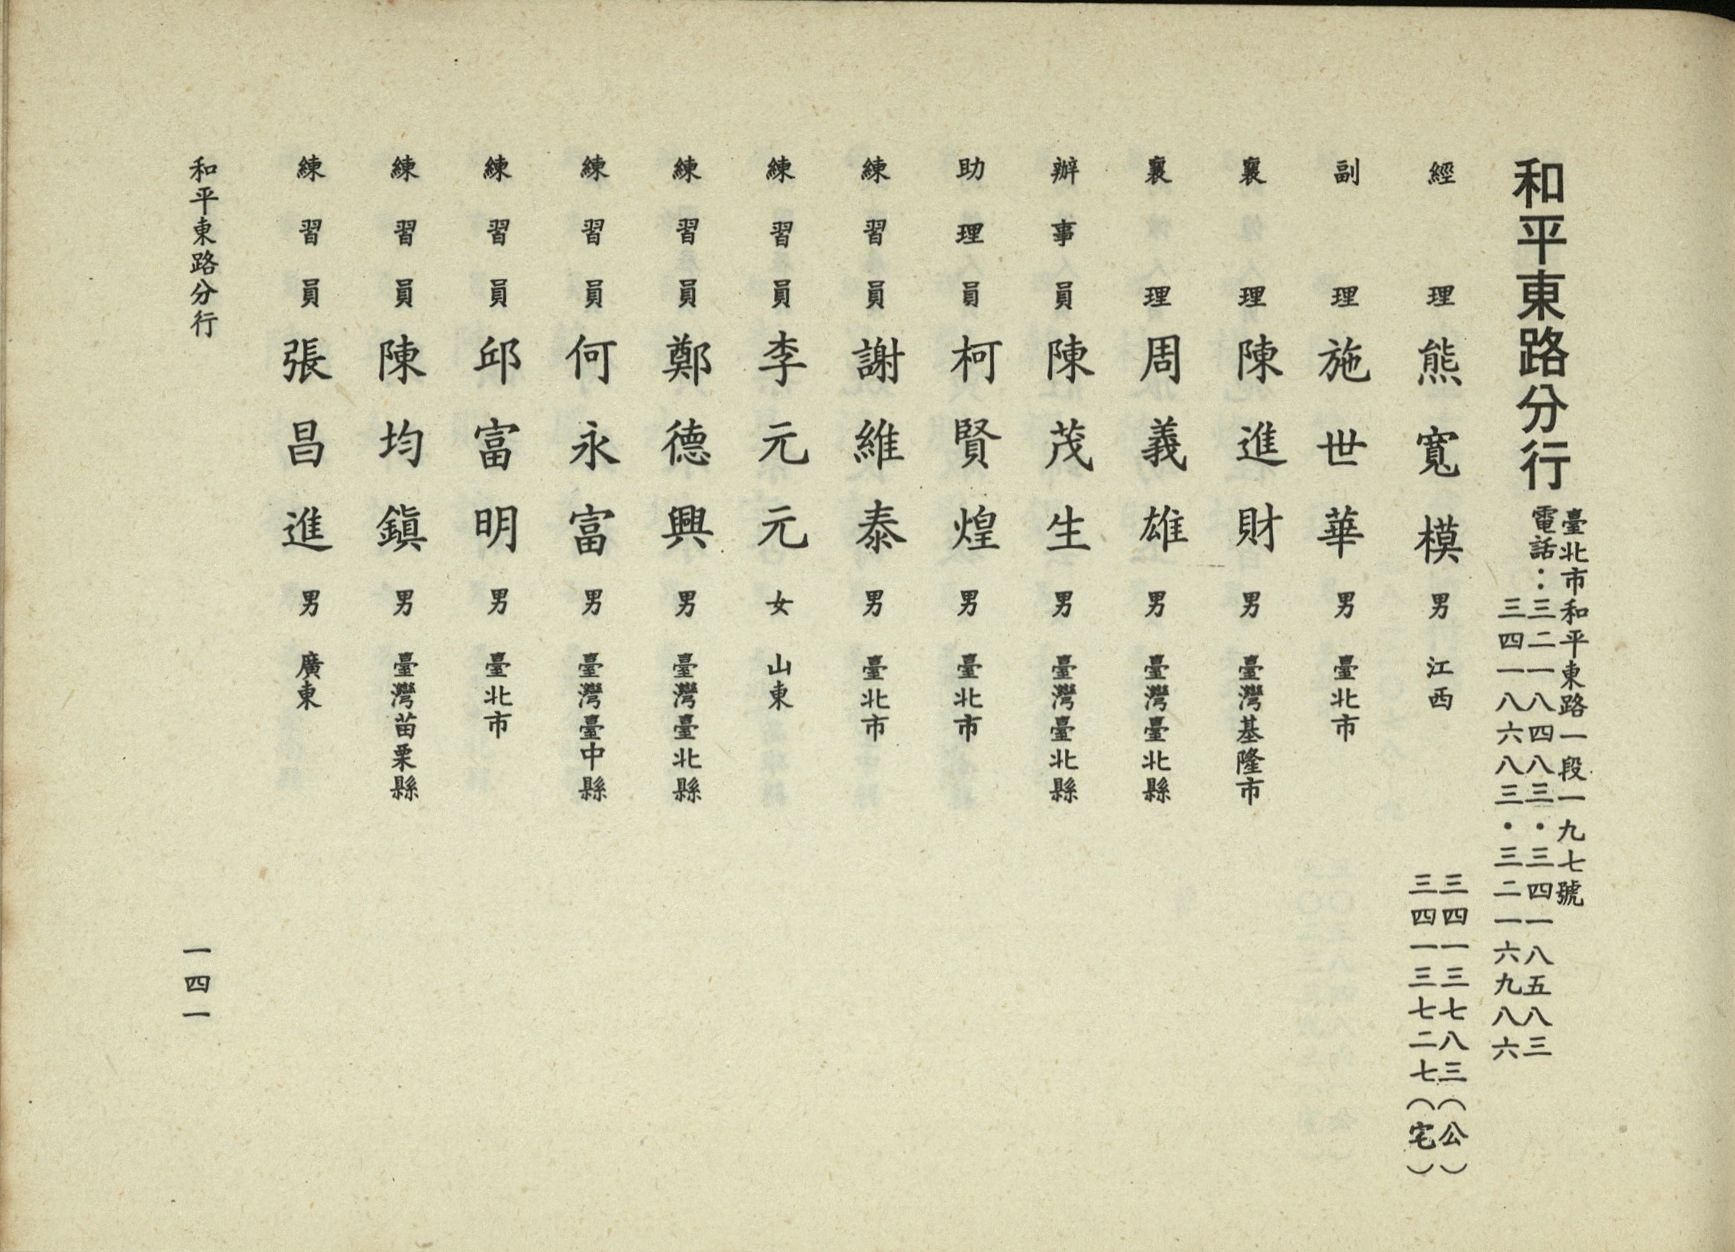 和平東路分行
臺北市和平東路一段一九七號
電話：三二一八四八三・三四一八五八三
三四一八六八三・三二一六九八六
經理 熊寬模 男 江西 三四一三七八三（公）
三四一三七二七（宅）
副理 施世華 男 臺北市
襄理 陳進財 男 臺灣基隆市
襄理 周義雄 男 臺灣臺北縣
辦事員 陳茂生 男 臺灣臺北縣
助理員 柯賢煌 男 臺北市
練習員 謝維泰 男 臺北市
練習員 李元元 女 山東
練習員 鄭德興 男 臺灣臺北縣
練習員 何永富 男 臺灣臺中縣
練習員 邱富明 男 臺北市
練習員 陳均鎮 男 臺灣苗栗縣
練習員 張昌進 男 廣東
和平東路分行
一四一